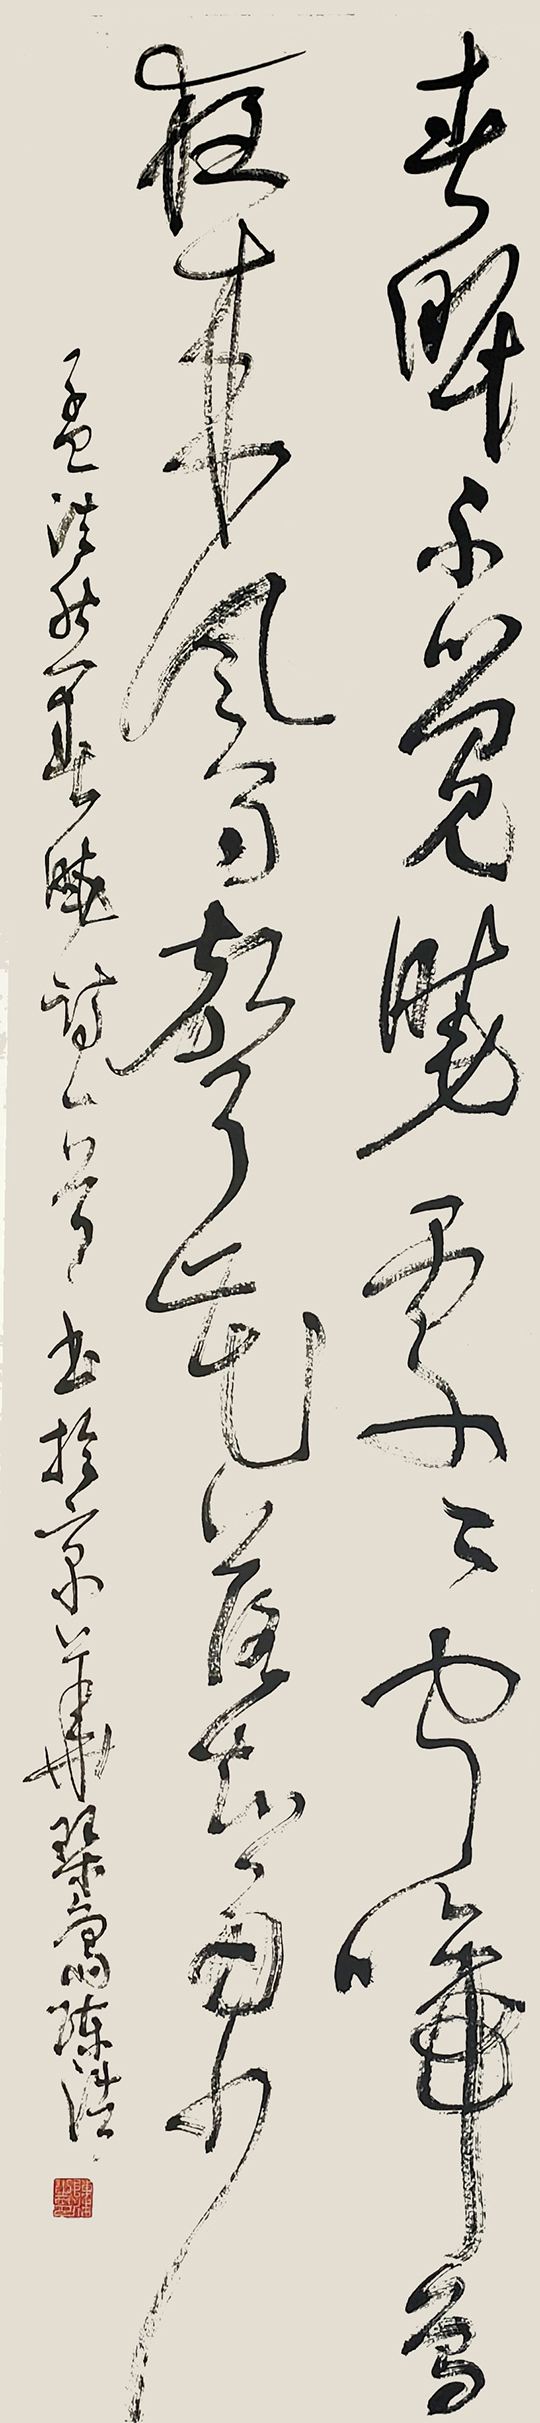 春眠不觉晓处处闻啼鸟
夜来风雨声花落知多少
孟浩然春晓诗一首书于京华琴斋陈浩